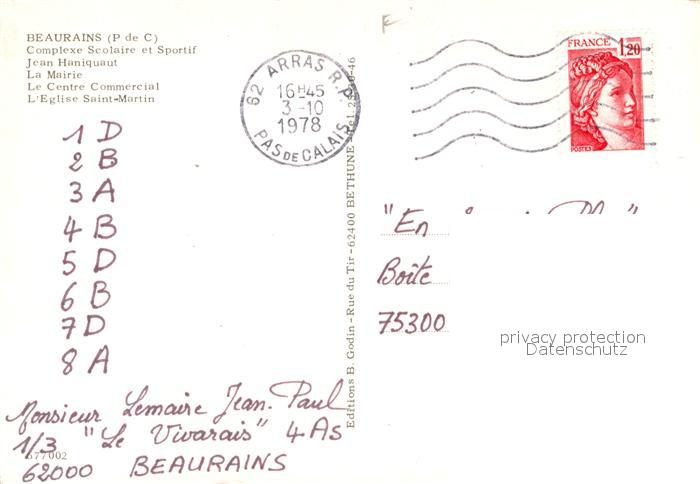 BEAURAINS (P de C)
Complexe Scolaire et Sportif
Jean Haniquaut
La Mairie
Le Centre Commercial
L'Eglise Saint-Martin
1 D
2 B
3 A
4 B
5 D
6 B
7 D
8 A
Monsieur Lemaire Jean-Paul
1/3 "Le Vivarais" 4 As
62000 BEAURAINS
577002
62 ARRAS R.P.
16H45
3-10
1978
PAS DE CALAIS
Editions B. Godin - Rue du Tir - 62400 BETHUNE
FRANCE
1,20
POSTES
"En
Boîte
75300
privacy protection
Datenschutz